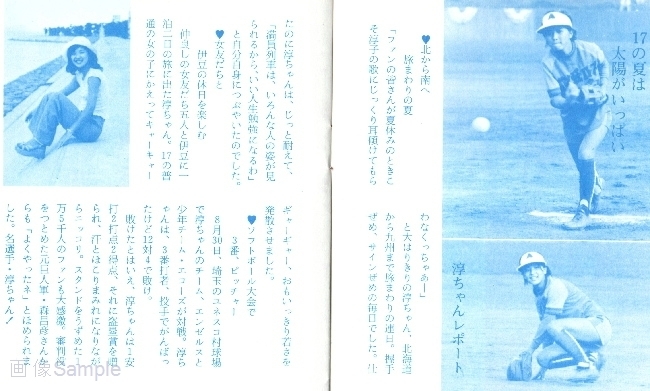 17の夏は
太陽がいっぱい
♥北から南へ
旅まわりの夏
「ファンの皆さんが夏休みのときこ
そ淳子の歌にじっくり耳傾けてもら
わなくっちゃあー」
と大はりきりの淳ちゃん。北海道
から九州まで旅まわりの連日。握手
ぜめ、サインぜめの毎日でした。仕
淳ちゃんレポート
たのに淳ちゃんは、じっと耐えて、
「満員列車は、いろんな人の姿が見
られるから、いい人生勉強になるわ」
と自分自身につぶやいたのでした。
♥女友だちと
伊豆の休日を楽しむ
仲良しの女友だち五人と伊豆に一
泊二日の旅に出た淳ちゃん。17の普
通の女の子にかえってキャーキャー
ギャーギャー、おもいっきり若さを
発散させました。
♥ソフトボール大会で
3番、ピッチャー
8月30日、埼玉のユネスコ村球場
で淳ちゃんのチーム、エンゼルスと
少年チーム・エコーズが対戦。淳ち
ゃんは、3番打者、投手でがんばっ
たけど12対4で敗け。
敗けたとはいえ、淳ちゃんは1安
打2打点2得点、それに盗塁賞を贈
られ、汗とほこりまみれになりなが
らニッコリ。スタンドをうずめた一
万5千人のファンも大感激。審判役
をつとめた元巨人軍・森昌彦さんか
らも「よくやったネ」とほめられま
した。名選手・淳ちゃん!
画像Sample